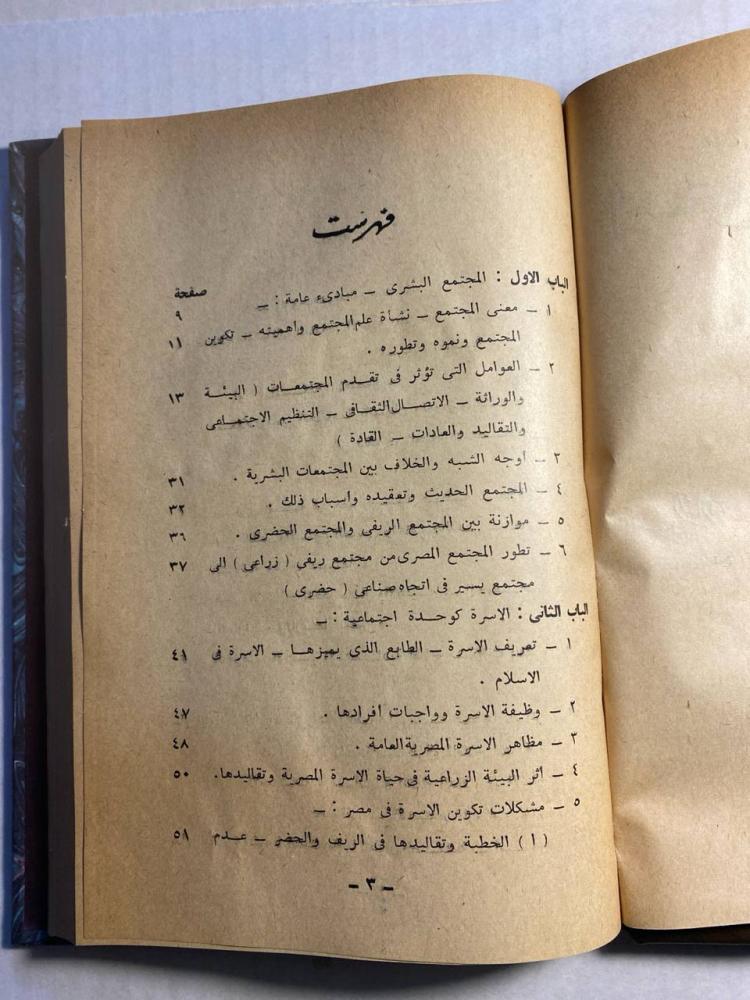 فهرست
صفحة
الباب الاول : المجتمع البشرى ــ مبادىء عامة : ــ
٩
١ ــ معنى المجتمع ــ نشأة علم المجتمع واهميته ــ تكوين ١١
المجتمع ونموه وتطوره .
٢ ــ العوامل التى تؤثر فى تقدم المجتمعات ( البيئة ١٣
والوراثة ــ الاتصال الثقافى ــ التنظيم الاجتماعى
والتقاليد والعادات ــ القادة )
٣ ــ اوجه الشبه والخلاف بين المجتمعات البشرية . ٣١
٤ ــ المجتمع الحديث وتعقيده واسباب ذلك . ٣٢
٥ ــ موازنة بين المجتمع الريفى والمجتمع الحضرى . ٣٦
٦ ــ تطور المجتمع المصرى من مجتمع ريفى ( زراعى ) الى ٣٧
مجتمع يسير فى اتجاه صناعى ( حضرى )
الباب الثانى : الاسرة كوحدة اجتماعية : ــ
١ ــ تعريف الاسرة ــ الطابع الذى يميزها ــ الاسرة فى ٤١
الاسلام .
٢ ــ وظيفة الاسرة وواجبات افرادها . ٤٧
٣ ــ مظاهر الاسرة المصرية العامة . ٤٨
٤ ــ اثر البيئة الزراعية فى حياة الاسرة المصرية وتقاليدها. ٥٠
٥ ــ مشكلات تكوين الاسرة فى مصر : ــ
( ١ ) الخطبة وتقاليدها فى الريف والحضر ــ عدم ٥٨
ــ ٣ ــ